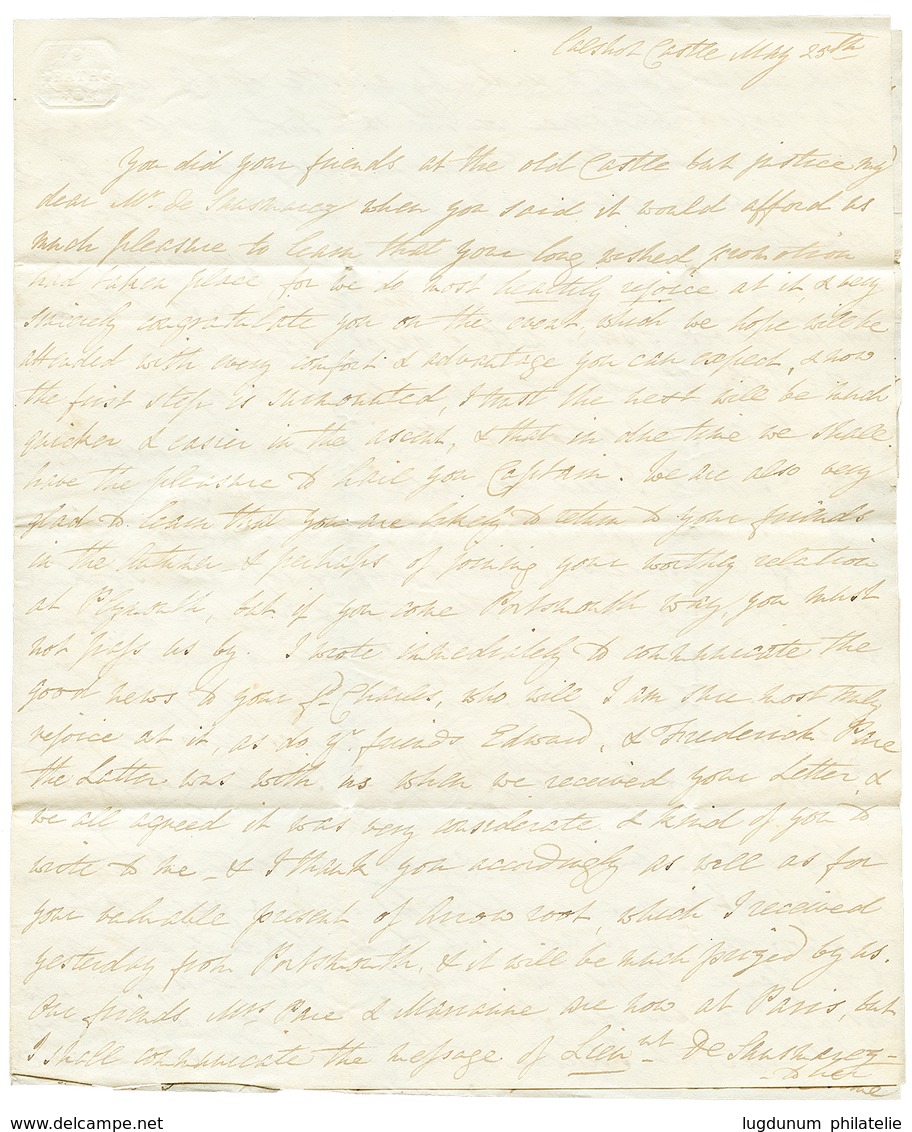 Calshot Castle May 25th
You did your friends at the old Castle but justice my
dear Mr. de Sausmarez when you said it would afford us
much pleasure to learn that your long wished promotion
had taken place for we do most heartily rejoice at it, & very
sincerely congratulate you on the event, which we hope will be
attended with every comfort & advantage you can expect, & now
the first step is surmounted, I trust the next will be much
quicker & easier in the ascent, & that in due time we shall
have the pleasure to hail you Captain. We are also very
glad to learn that you are likely to return to your friends
in the Autumn & perhaps of joining your worthy relation
at Plymouth, but if you come Portsmouth way, you must
not pass us by. I wrote immediately to communicate the
good news to your fd. Charles, who will I am sure most truly
rejoice at it, as do yr. friends Edward, & Frederick
the Latter was with us when we received your Letter &
we all agreed it was very considerate & kind of you to
write to me _ & I thank you accordingly as well as for
your valuable present of Arrow root, which I received
yesterday from Portsmouth, & it will be much prized by us.
our friends Mrs. & Marianne are now at Paris, but
I shall communicate the message of Lieunt. De Sausmarez
to her
me
lugdunum philatelie
www.delcampe.net